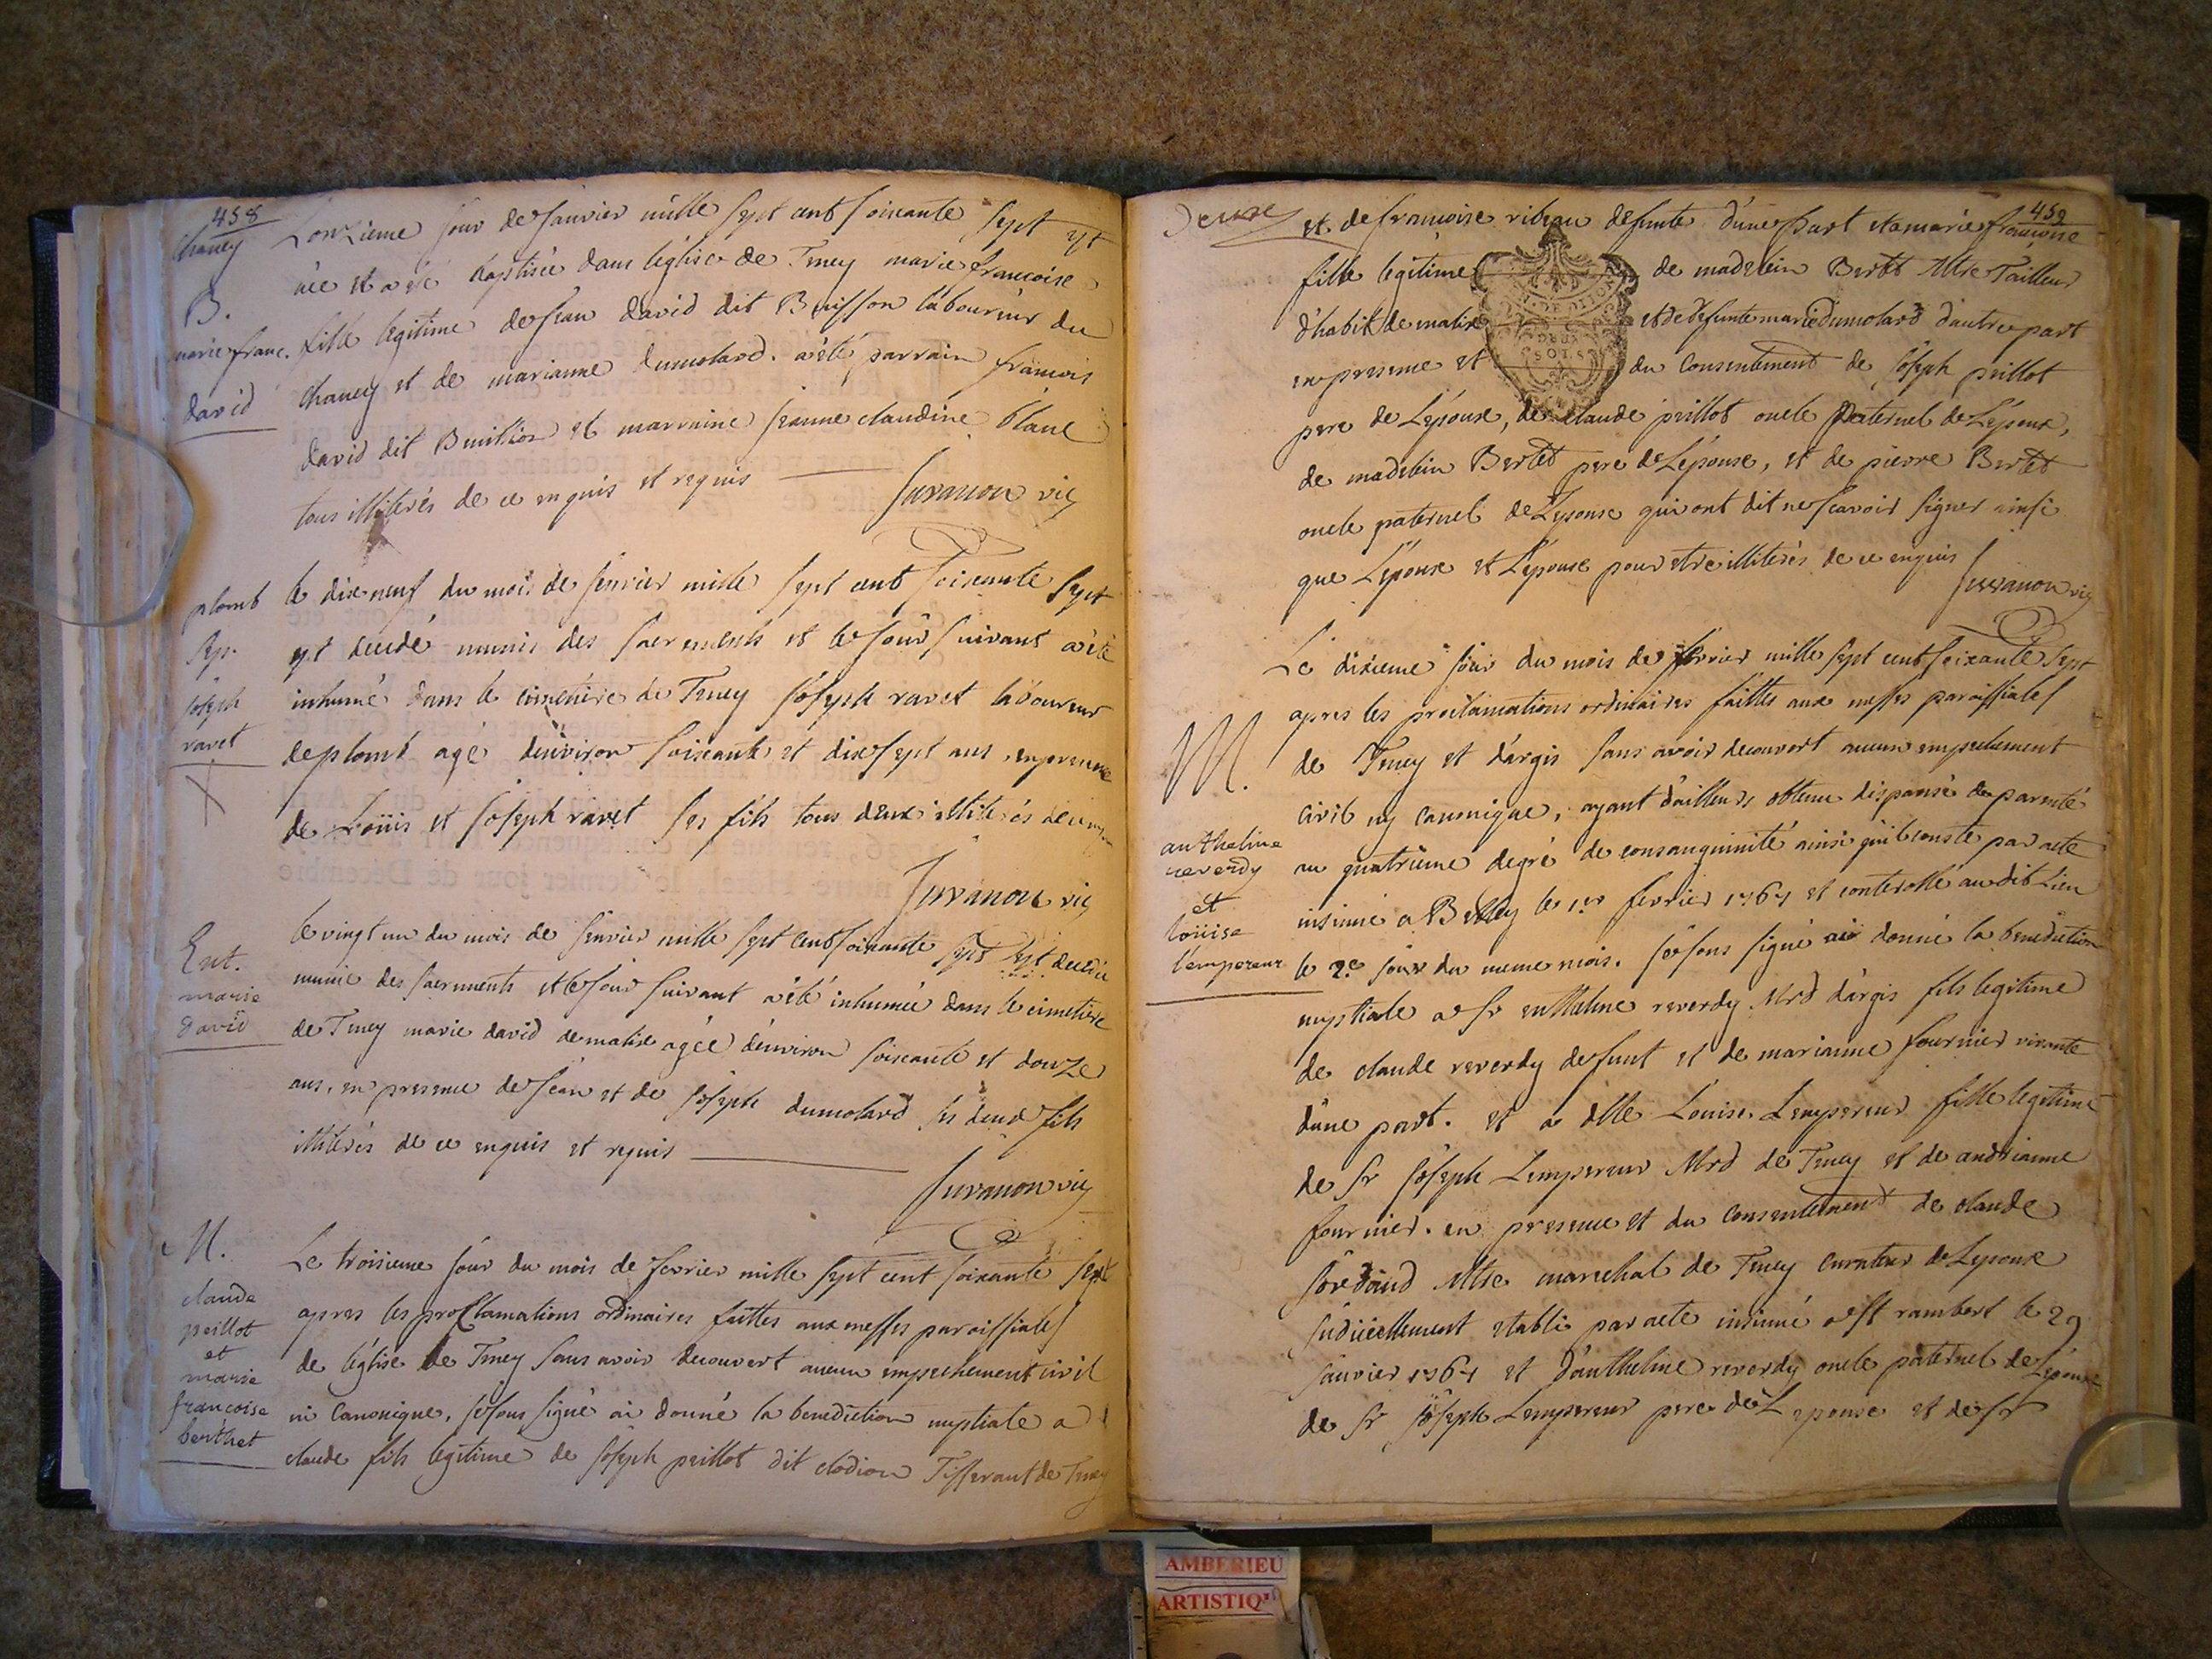 458
Chaney
B.
marie franc.
david
L'onzieme jour de janvier mille sept cent soixante sept est
née et a été baptisée dans l'église de Teney marie francoise
fille legitime de jean david dit Buisson laboureur du
Chaney et de marianne dumolard. a été parrain francois
david dit Buisson et marraine jeanne claudine blanc
tous illiterés de ce enquis et requis
Juvanon vic
plomb
Sep.
joseph
ravet
le dixneuf du mois de janvier mille sept cent soixante sept
est decedé munis des sacrements et le jour suivant a été
inhumé dans le cimetiere de Teney joseph ravet laboureur
de plomb agé d'environ soixante et dixsept ans, en presence
de Loüis et joseph ravet ses fils tous deux illiterés de ce enquis
Juvanon vic
Ent.
marie
david
le vingt un du mois de janvier mille sept cent soixante sept est decedée
munie des sacrements et le jour suivant a été inhumée dans le cimetiere
de Teney marie david de malix agée d'environ soixante et douze
ans, en presence de jean et de joseph dumolard ses deux fils
illiterés de ce enquis et requis
Juvanon vic
M.
claude
peillot
et
marie
francoise
berthet
Le troisieme jour du mois de fevrier mille sept cent soixante sept
apres les proclamations ordinaires faittes aux messes paroissiales
de l'église de Teney sans avoir decouvert aucun empechement civil
ni Canonique, je sous signé ai donné la benediction nuptiale a
claude fils legitime de joseph peillot dit clodion Tisserant de Teney
Deux
459
et de francoise ribeau defunte d'une part et a marie francoise
fille legitime de madelein Bertet Mtre Tailleur
d'habit de malix et de defunte marie dumolard d'autre part
en presence et du Consentement de joseph peillot
pere de L'époux, de claude peillot oncle paternel de L'époux,
de madelein Bertet pere de L'epouse, et de pierre Bertet
oncle paternel de L'épouse qui ont dit ne scavoir signer ainsi
que L'époux et L'épouse pour etre illiterés de ce enquis
Juvanon vic
M.
antheline
reverdy
et
loüise
l'empereur
Le dixieme jour du mois de fevrier mille sept cent soixante sept
apres les proclamations ordinaires faittes aux messes paroissiales
de Teney et d'argis sans avoir decouvert aucun empechement
civil ny canonique, ayant d'ailleurs obtenu dispanse de parenté
au quatrieme degré de consanguinité ainsi qu'il conste par acte
insinué a Belley le 1er fevrier 1767 et controllé au dit Lieu
le 2e jour du meme mois. je sous signé ai donné la benediction
nuptiale a sr antheline reverdy Mrd d'argis fils legitime
de claude reverdy defunt et de marianne fournier vivante
d'une part. et a dlle Louise Lempereur fille legitime
de sr joseph Lempereur Mrd de Teney et de andrianne
fournier. en presence et du consentement de claude
Mtre marechal de Teney curateur de L'epoux
judiciellement etabli par acte insinué a st rambert le 29
janvier 1767 et d'antheline reverdy oncle paternel de L'époux
de sr joseph Lempereur pere de L'epouse et de sr
AMBERIEU
ARTISTIQ